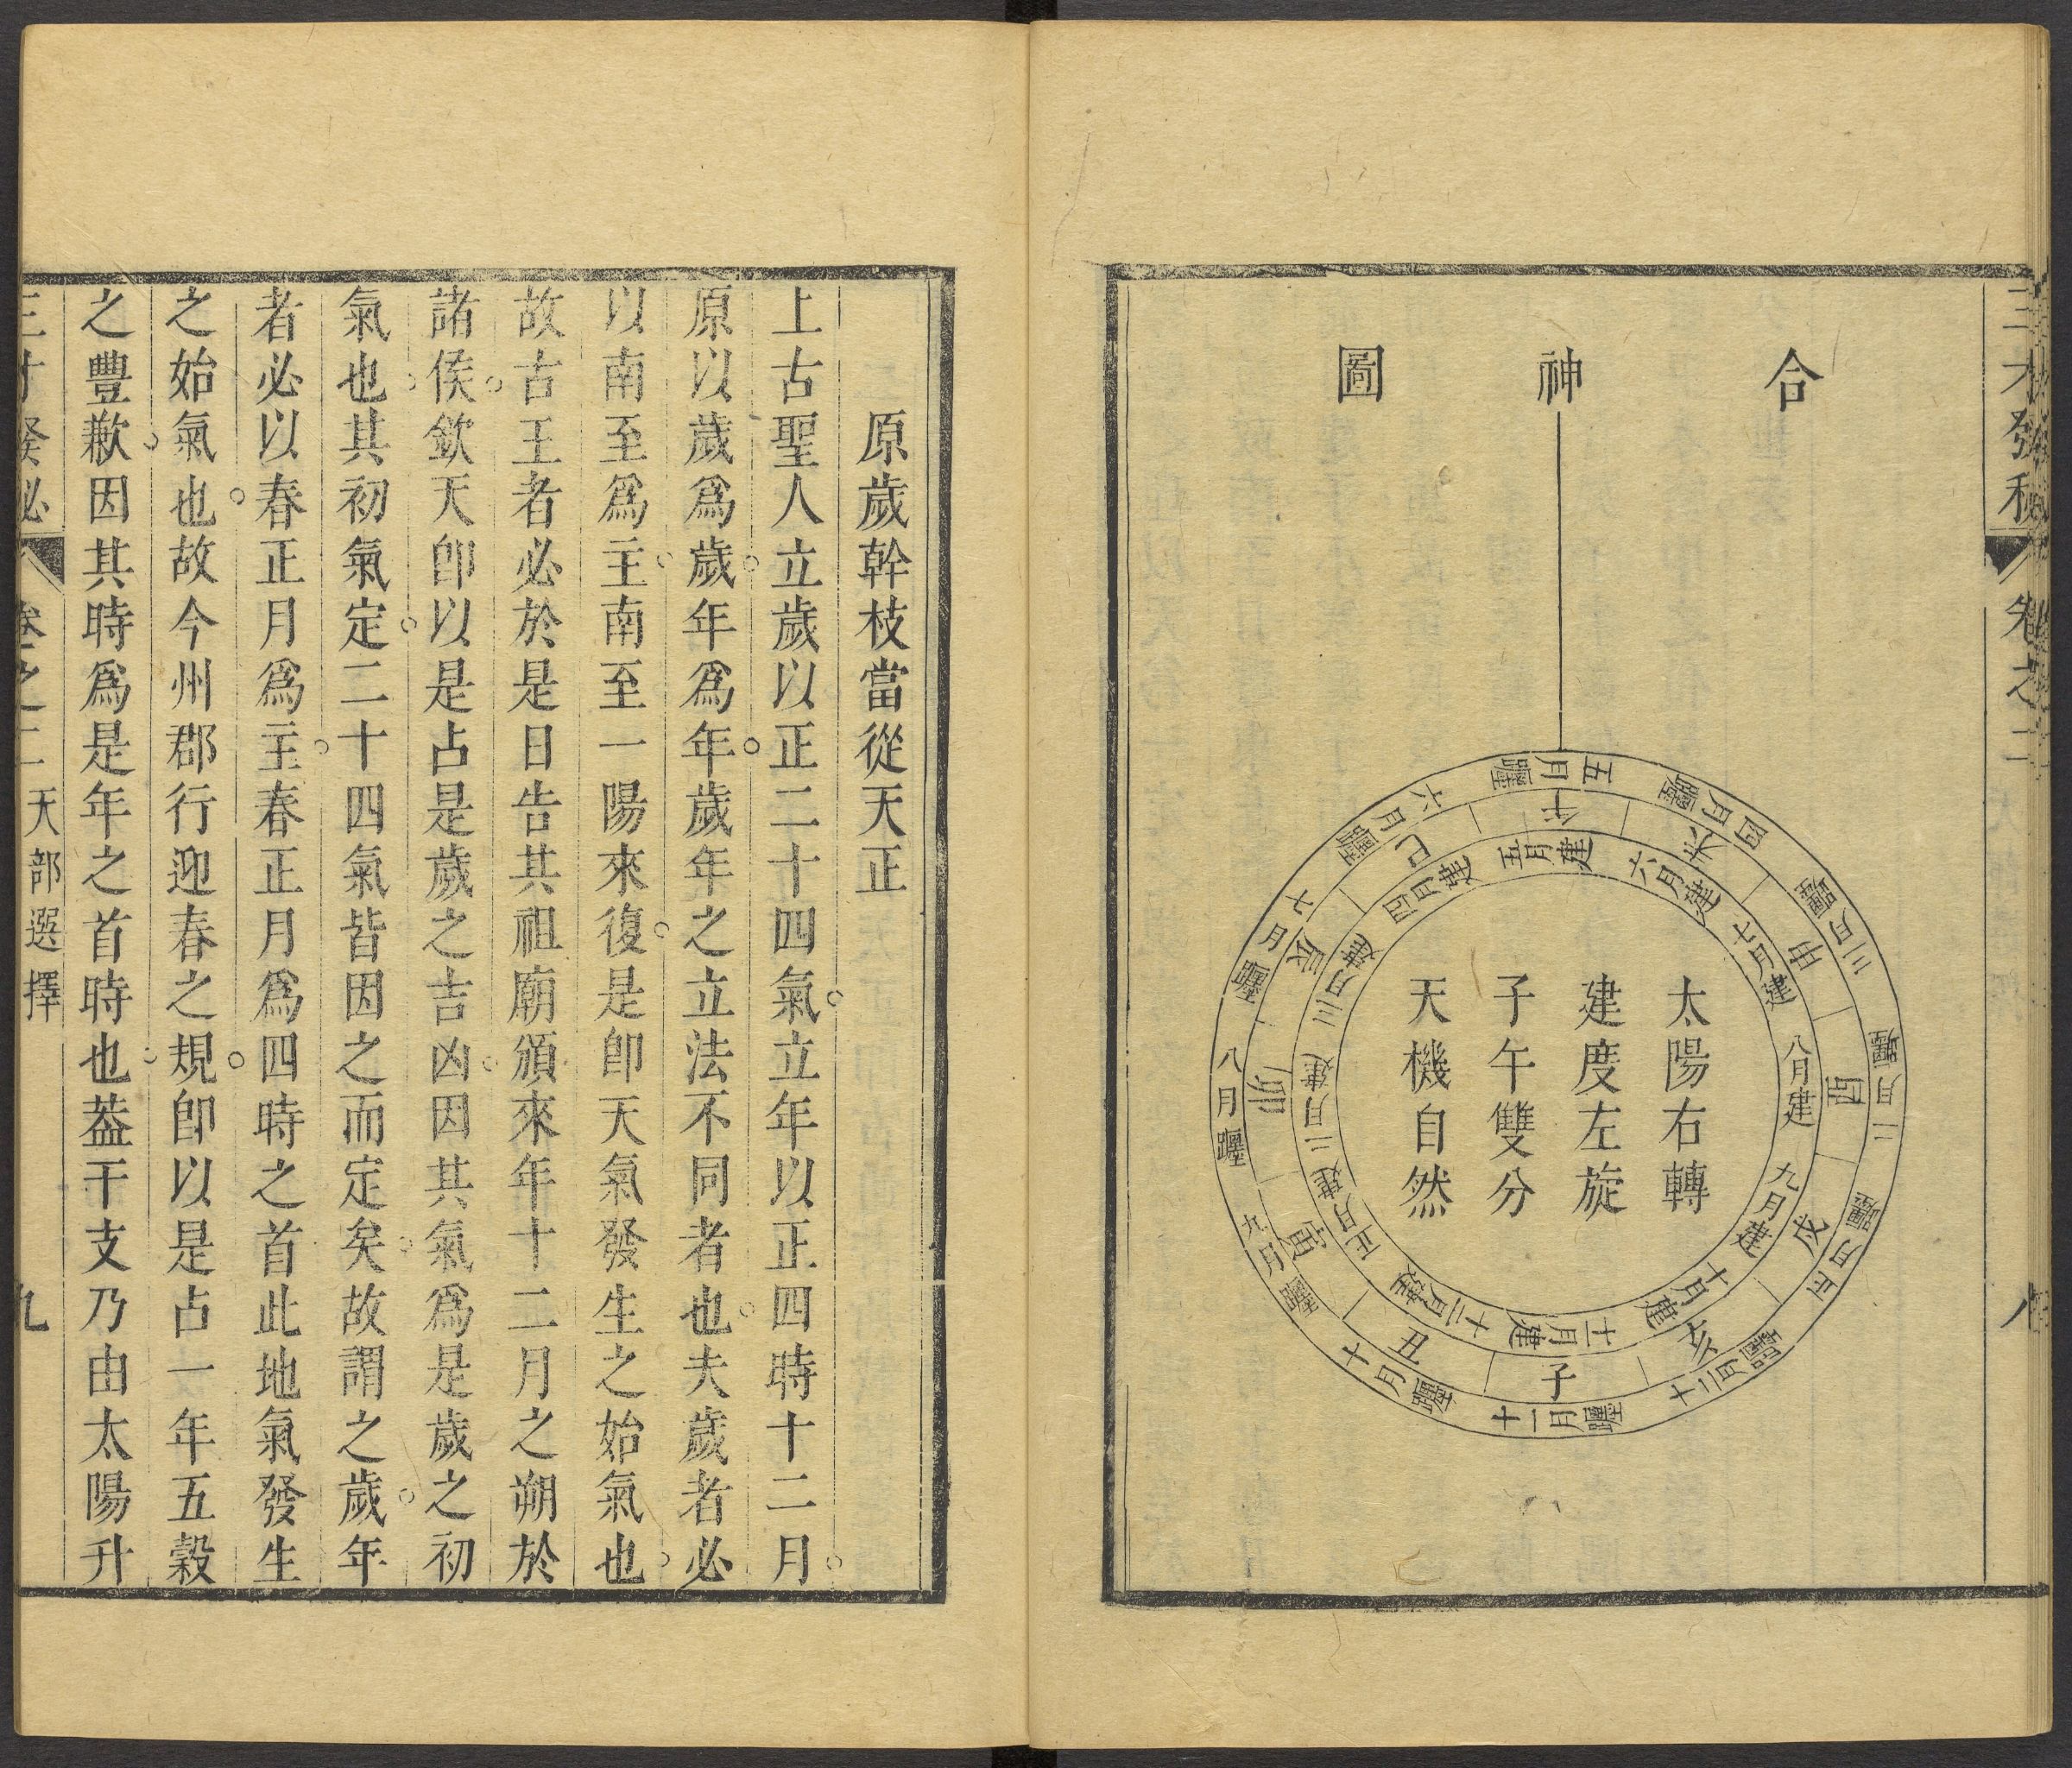 三才發秘
卷之二
八
合神圖
太陽右轉
建度左旋
子午雙分
天機自然
五月躔
四月躔
三月躔
二月躔
正月躔
十二月躔
十一月躔
十月躔
九月躔
八月躔
七月躔
六月躔
午
未
申
酉
戌
亥
子
丑
寅
卯
辰
巳
五月建
六月建
七月建
八月建
九月建
十月建
十一月建
十二月建
正月建
二月建
三月建
四月建
原歲幹枝當從天正
上古聖人立歲以正二十四氣立年以正四時十二月
原以歲爲歲年爲年歲年之立法不同者也夫歲者必
以南至爲主南至一陽來復是卽天氣發生之始氣也
故古王者必於是日告其祖廟頒來年十二月之朔於
諸侯欽天卽以是占是歲之吉凶因其氣爲是歲之初
氣也其初氣定二十四氣皆因之而定矣故謂之歲年
者必以春正月爲主春正月爲四時之首此地氣發生
之始氣也故今州郡行迎春之規卽以是占一年五穀
之豐歉因其時爲是年之首時也葢干支乃由太陽升
三才發秘
卷之二
天部選擇
九